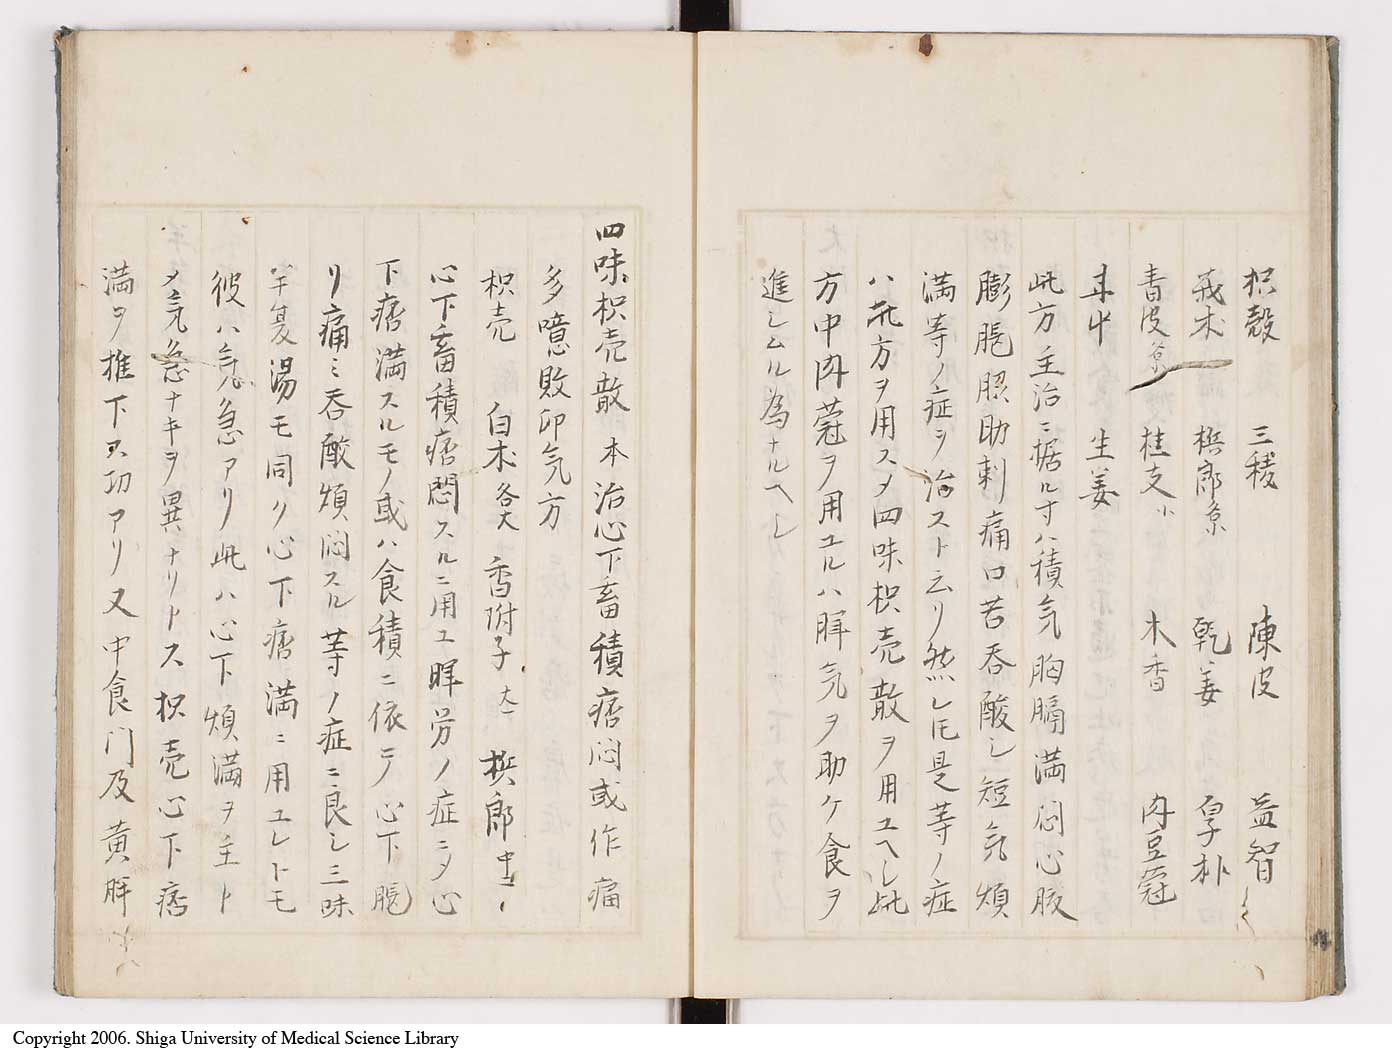 枳殻 三稜 陳皮 益智
莪朮 梹郎 乾姜 厚朴
青皮 桂支小 木香 肉豆蔲
甘中 生姜
此方主治ニ据ルﾄｷハ積気胸膈満悶心腹
膨脹脇肋刺痛口苦呑酸シ短気煩
満等ノ症ヲ治スト云リ然レ𪜈是等ノ症
ハ此方ヲ用スメ四味枳売散ヲ用ユヘシ此
方中肉蔲ヲ用ユルハ脾気ヲ助ケ食ヲ
進シムル為ナルヘシ
四味枳売散 本治心下畜積痞悶或作痛
多噫敗卵気方
枳売 白朮各大 香附子大 梹郎中
心下畜積痞悶スルニ用ユ脾労ノ症ニメ心
下痞満スルモノ或ハ食積ニ依テ心下脹
リ痛ミ呑酸煩悶スル等ノ症ニ良シ三味
半夏湯モ同ク心下痞満ニ用ユレトモ
彼ハ気急アリ此ハ心下煩満ヲ主ト
メ気急ナキヲ異ナリトス枳売心下痞
満ヲ推下ス功アリ又中食門及黄胖
Copyright 2006. Shiga University of Medical Science Library